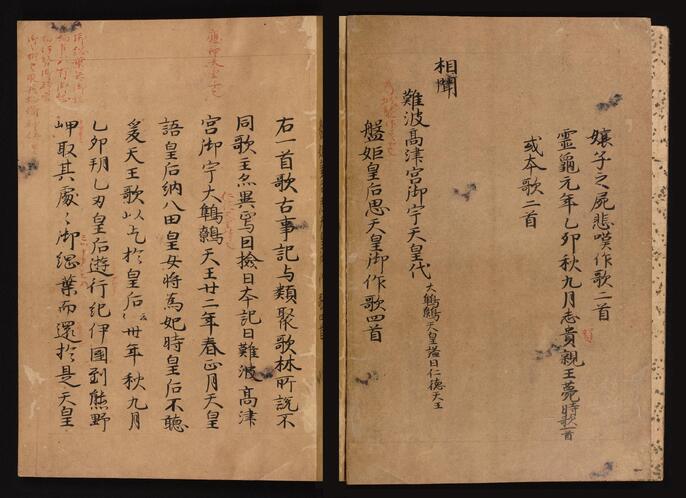 嬢子之屍悲嘆作歌二首
霊龜元年乙卯秋九月志貴親王薨時歌一首
或本歌二首
相聞
難波高津宮御宇天皇代 大鷦鷯天皇諡曰仁德天王
盤姫皇后思天皇御作歌四首
右一首歌古事記与類聚歌林所説不
同歌主亦異焉因撿日本記曰難波高津
宮御宇大鷦鷯天王廿二年春正月天皇
語皇后納八田皇女将為妃時皇后不聴
爰天王歌以乞於皇后云卅年秋九月
乙卯朔乙丑皇后遊行紀伊國到熊野
岬取其處々御綱葉而還於是天皇